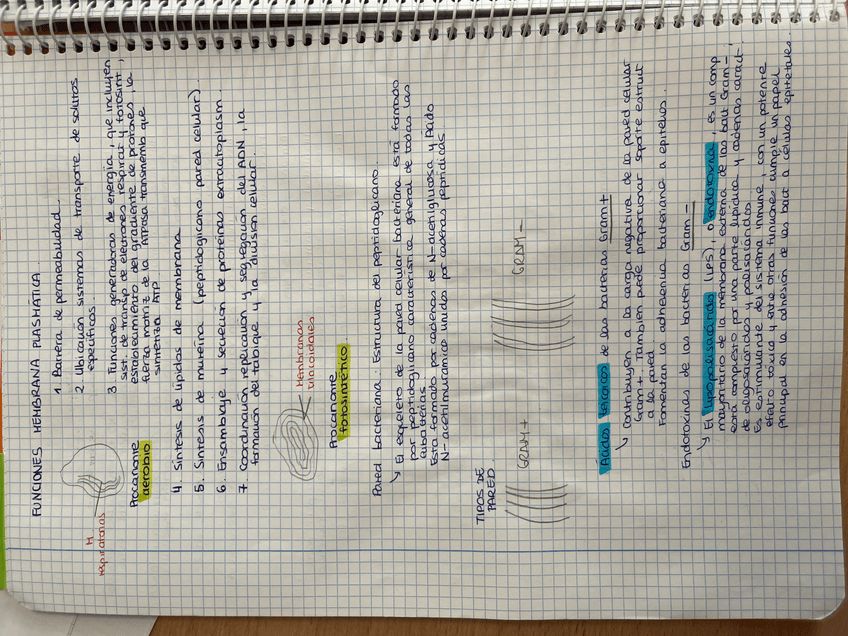 FUNCIONES MEMBRANA PLASMÁTICA
1. Barrera de permeabilidad.
2. Ubicación sistemas de transporte de solutos
específicos.
3. Funciones generadoras de energía, que incluyen
sist. de transp de electrones respirat y fotosint,
establecimiento del gradiente de protones, la
fuerza motriz de la ATPasa transmemb que
sintetiza ATP
M
respiratorias
Procarionte
aerobio
4. Síntesis de lípidos de membrana
5. Síntesis de mureína (peptidoglicano pared celular).
6. Ensamblaje y secreción de proteínas extracitoplasm.
7. Coordinación replicación y segregación del ADN, la
formación del tabique y la división celular.
Membranas
tilacoidales
Procarionte
fotosintético
Pared bacteriana: Estructura del peptidoglicano.
El esqueleto de la pared celular bacteriana está formado
por peptidoglicano característica general de todas las
eubacterias
Está formado por cadenas de N-acetilglucosa y Ácido
N-acetilmurámico unidos por cadenas peptídicas.
TIPOS DE
PARED.
GRAM+
GRAM-
Ácidos teicoicos de las bacterias Gram+
Contribuyen a la carga negativa de la pared celular
Gram+. También puede proporcionar soporte estruct
a la pared.
Fomentan la adherencia bacteriana a epitelios.
Endotoxinas de las bacterias Gram-
El lipopolisacárido (LPS), o endotoxina, es un comp
mayoritario de la membrana externa de las bact Gram-,
está compuesto por una parte lipídica y cadenas caract.
de oligosacáridos y polisacáridos
Es estimulante del sistema inmune, con un potente
efecto tóxico y entre otras funciones cumple un papel
principal en la adhesión de las bact a células epiteliales.